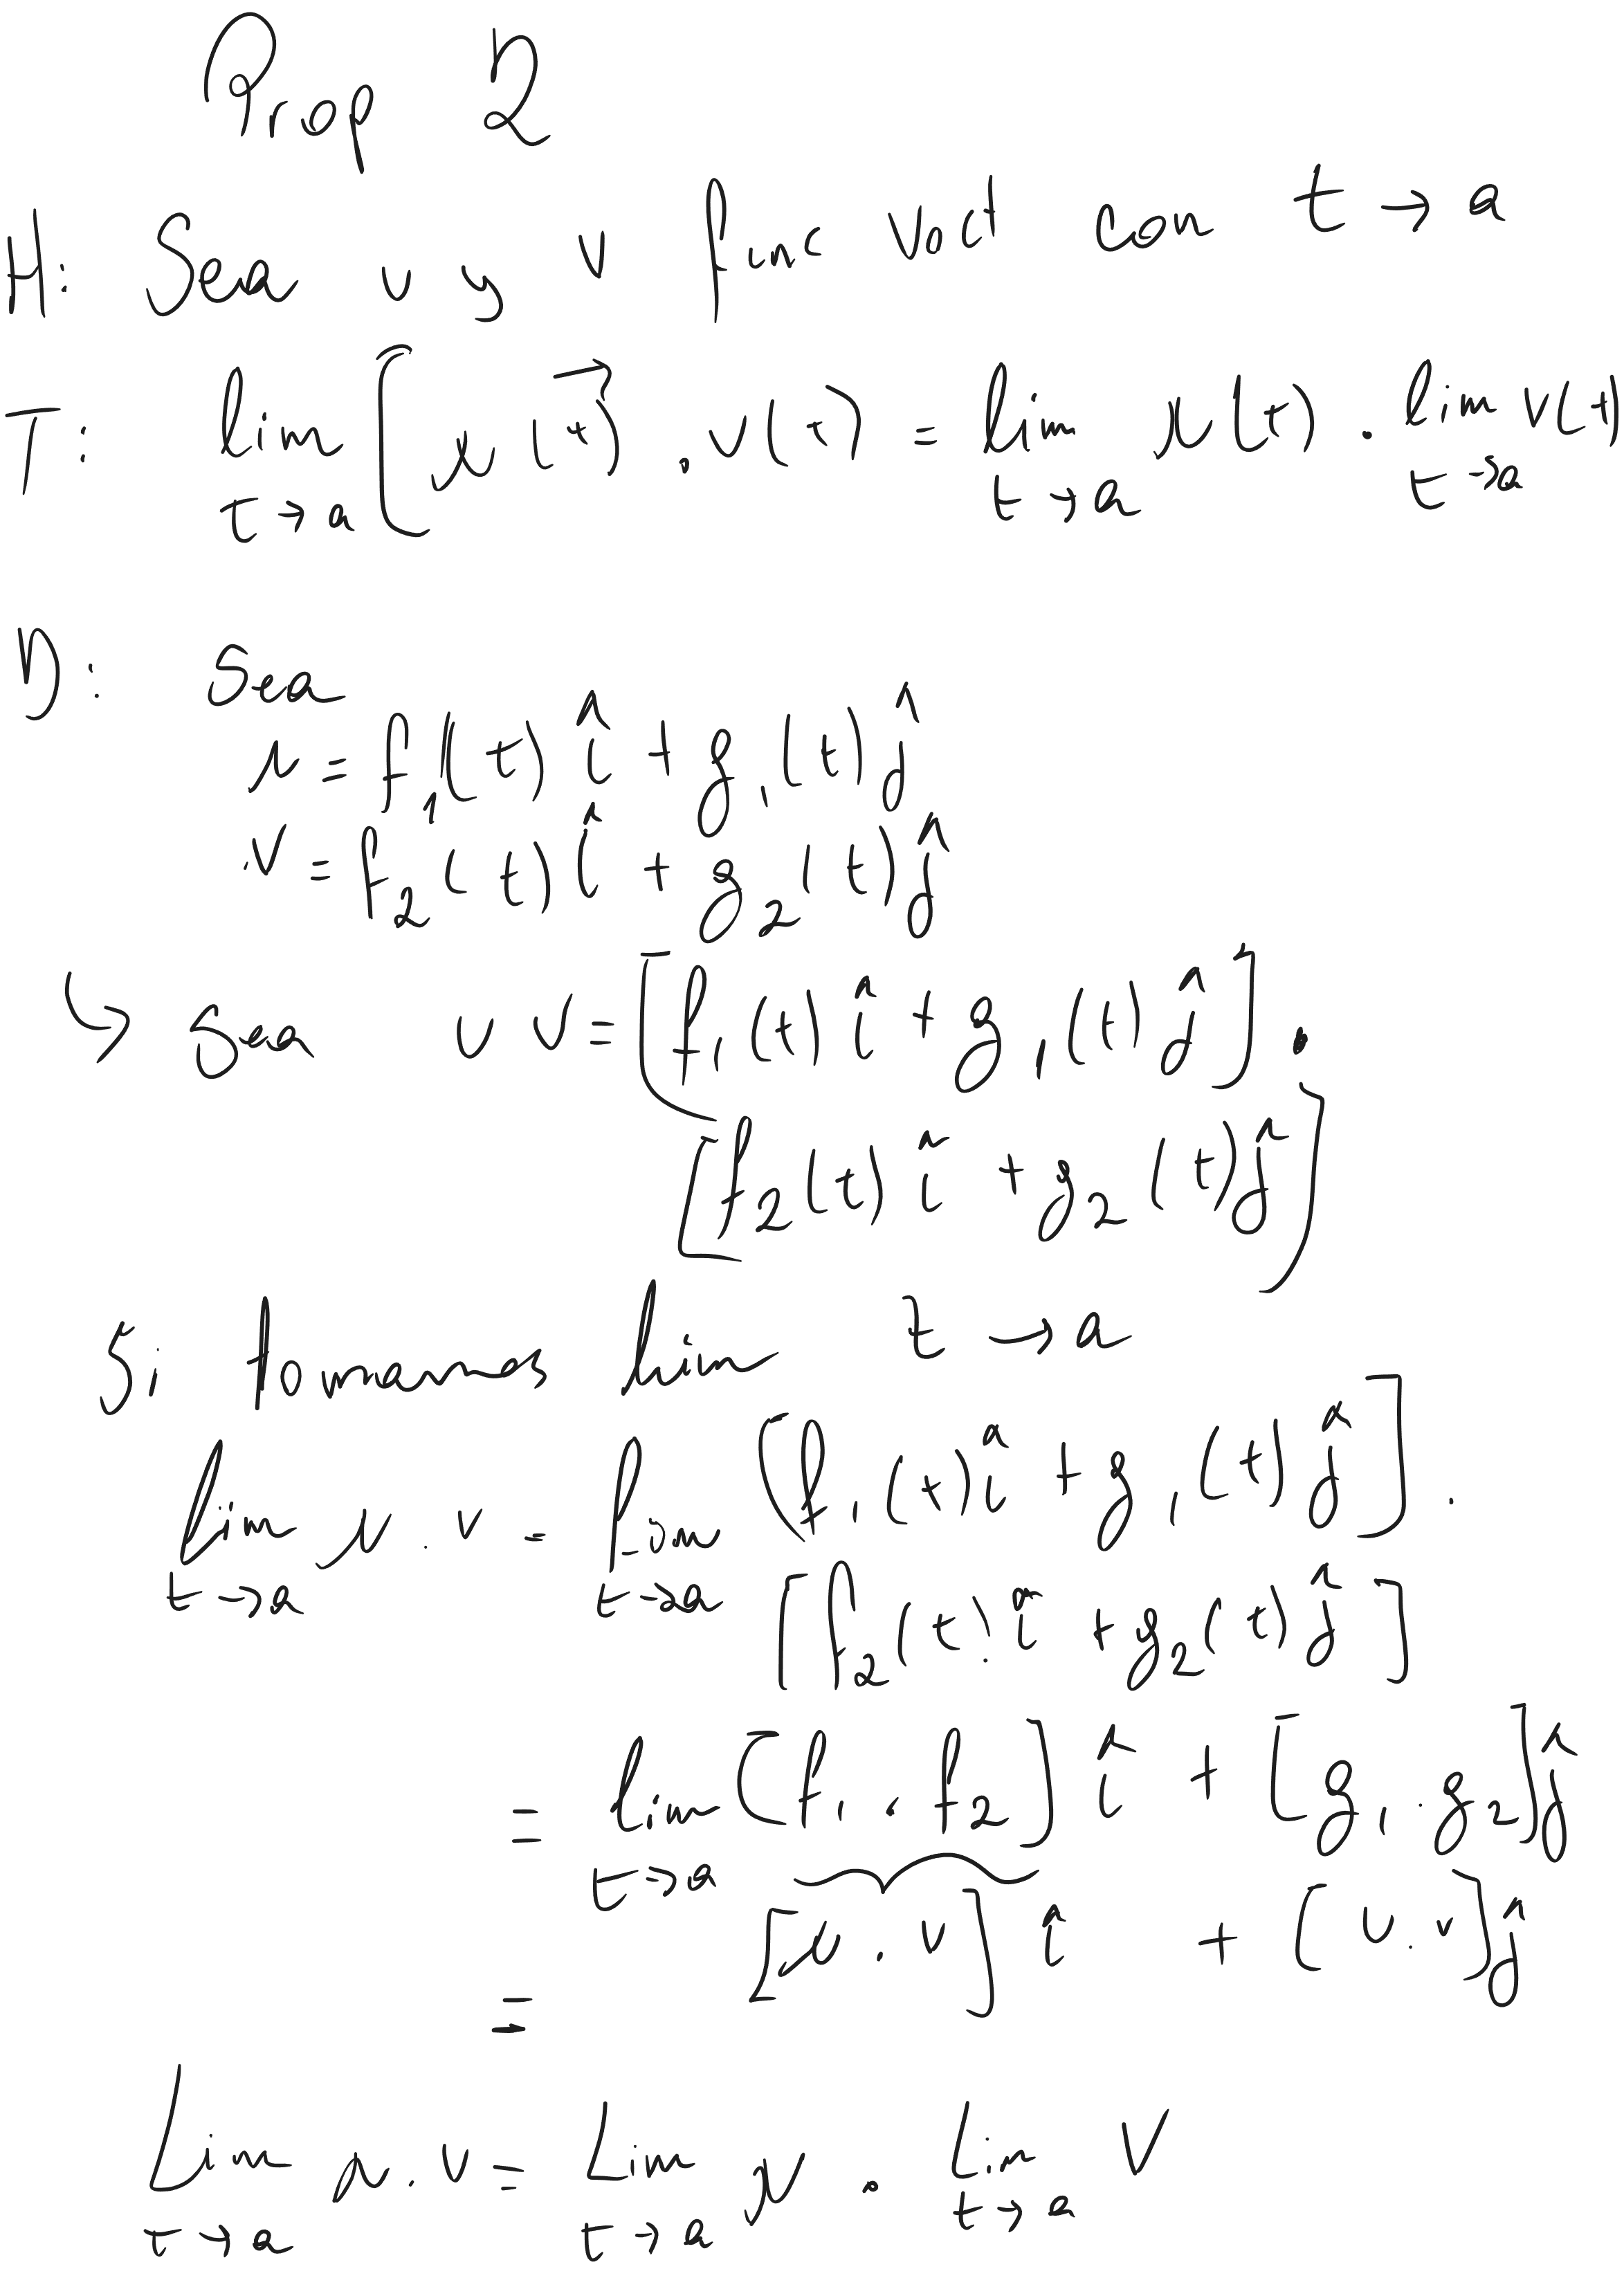 Prop 2
H: Sea u y v func Vect con t → a
T: lim t→a [u(t) . v(t)) = lim t→a u(t) . lim t→a v(t)
D: Sea
u = f₁(t) î + g₁(t) ĵ
v = f₂(t) î + g₂(t) ĵ
↳ sea u v = [f₁(t) î + g₁(t) ĵ] .
[f₂(t) î + g₂(t) ĵ]
Si tomamos lim t → a
lim t→a u . v = lim t→a [f₁(t) î + g₁(t) ĵ] .
[f₂(t) î + g₂(t) ĵ]
= lim t→a [f₁ . f₂] î + [g₁ . g₂] ĵ
= [u . v] î + [u . v] ĵ
Lim t→a u . v = Lim t→a u . Lim t→a v